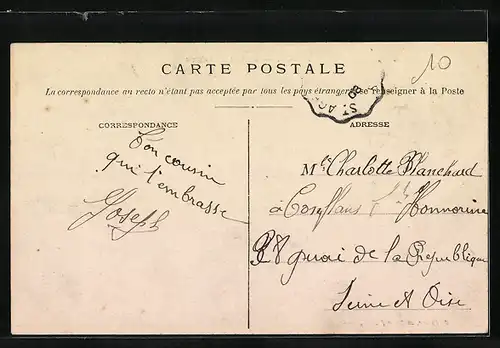 10
CARTE POSTALE
La correspondance au recto n'étant pas acceptée par tous les pays étrangers se renseigner à la Poste
ST. AG
CORRESPONDANCE
ADRESSE
Ton cousin
qui t'embrasse
Joseph
Mlle Charlotte Blanchard
à Conflans Ste Honnorine
28 quai de la République
Seine et Oise